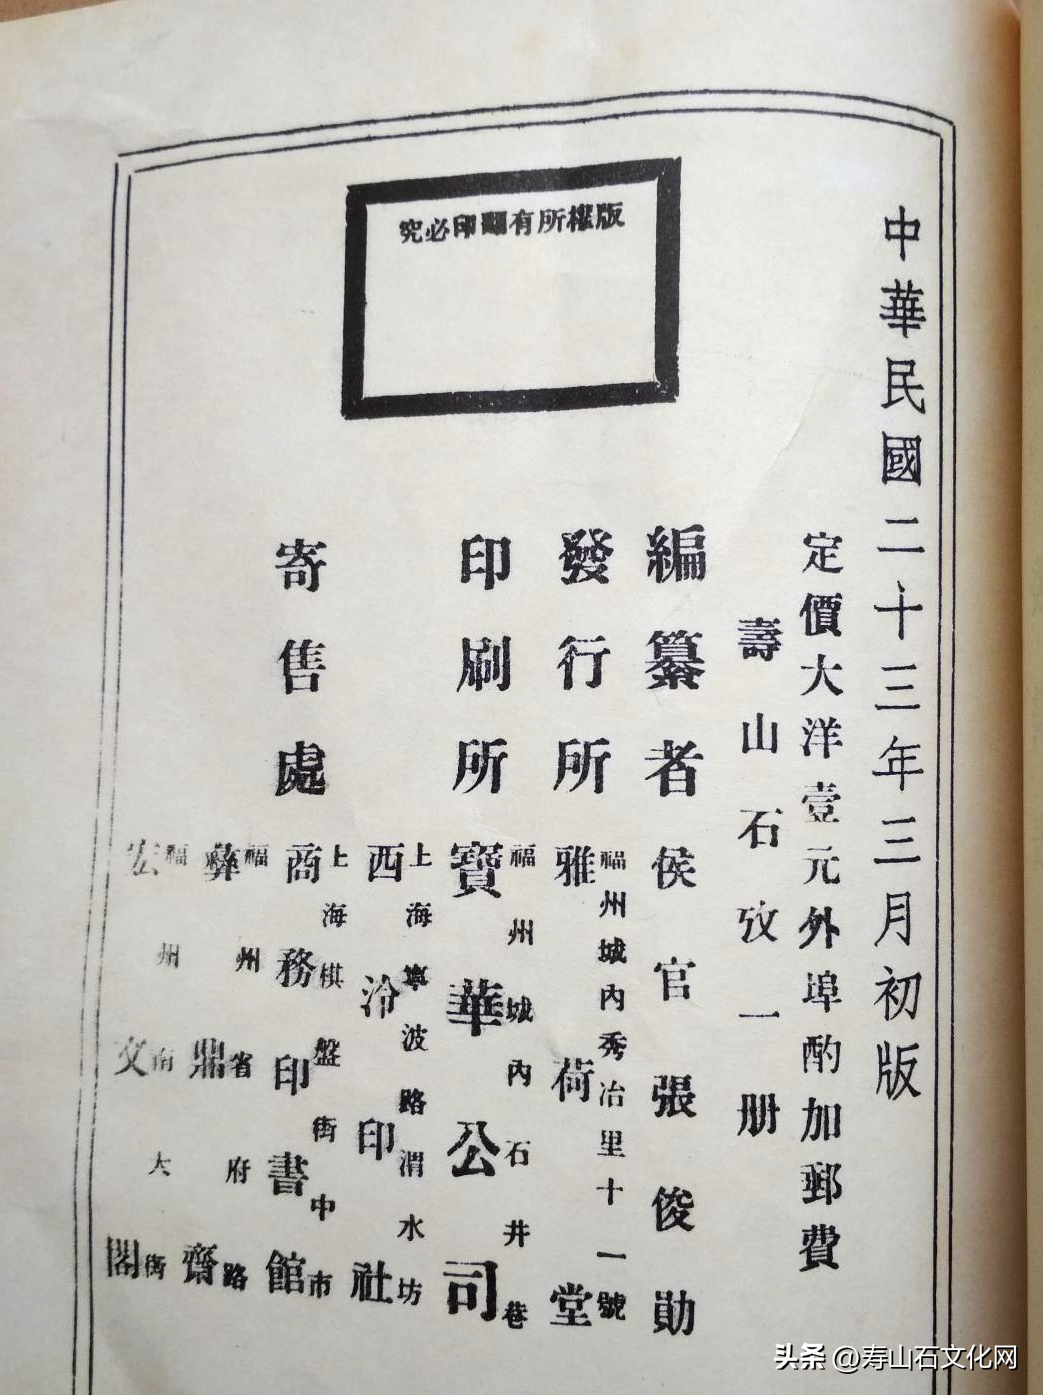 中華民國二十三年三月初版
定價大洋壹元外埠酌加郵費
壽山石攷一册
版權所有翻印必究
編纂者 侯官張俊勛
發行所 福州城內秀冶里十一號 雅荷堂
印刷所 福州城內石井巷 寶華公司
寄售處
上海寧波路渭水坊 西泠印社
上海棋盤街中市 商務印書館
福州省府路 彝鼎齋
福州南大街 宏文閣
头条 @寿山石文化网